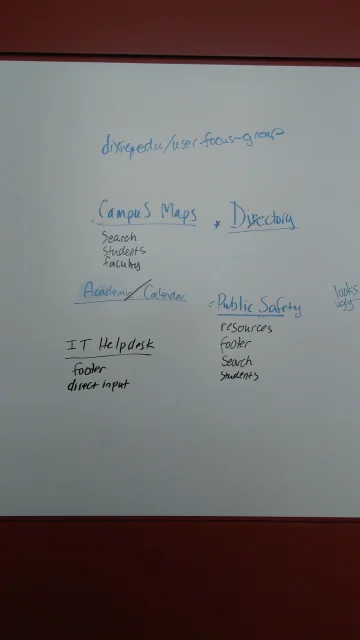 dixie.edu/user-focus-group
Campus Maps
Search
Students
faculty
* Directory
Academic Calendar
Public Safety
resources
footer
Search
Students
looks
ugly
IT Helpdesk
footer
direct input